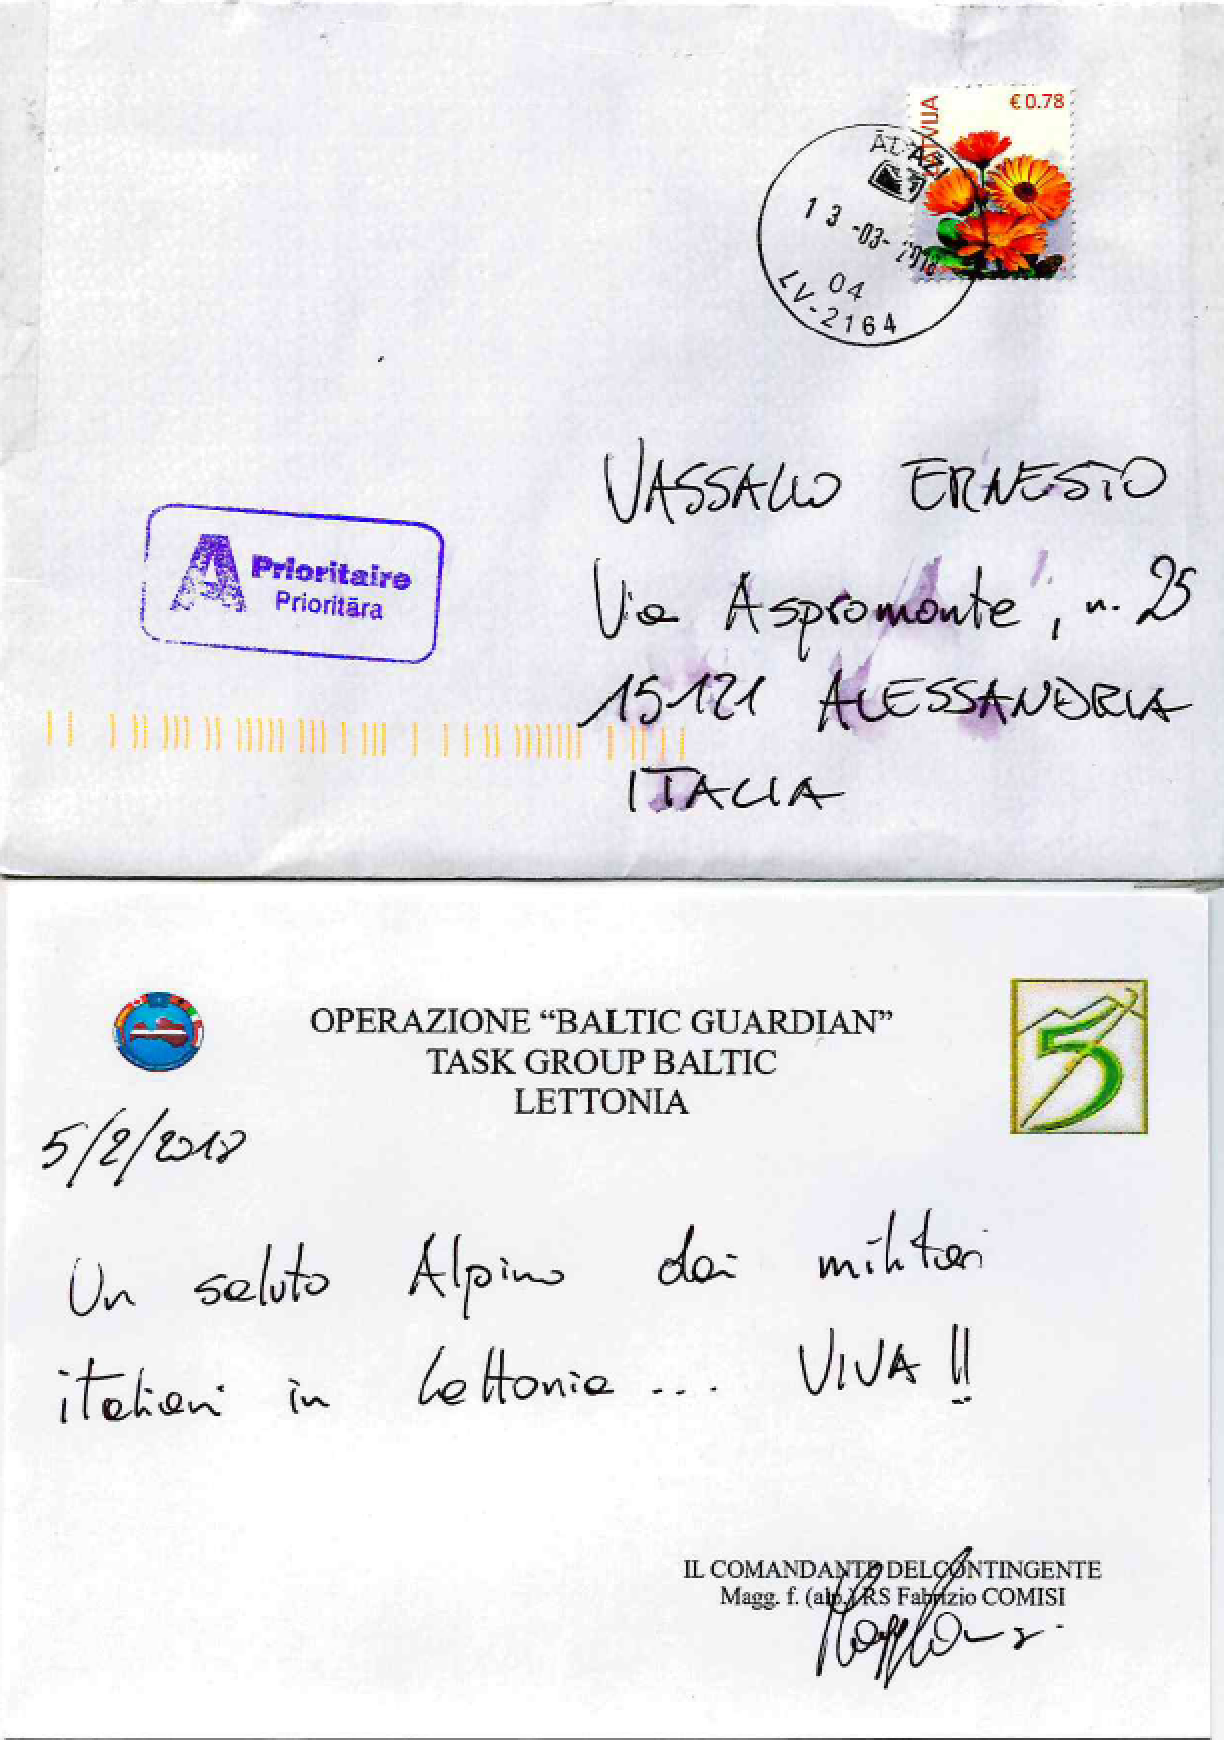 LATVIJA
€ 0.78
ĀDAŽI
13-03-2018
04
LV-2164
VASSALLO ERNESTO
Via Aspromonte, n. 25
15121 ALESSANDRIA
ITALIA
A Prioritaire
Prioritāra
OPERAZIONE “BALTIC GUARDIAN”
TASK GROUP BALTIC
LETTONIA
5
5/2/2018
Un saluto Alpino dai militari
italiani in Lettonia ... VIVA !!
IL COMANDANTE DEL CONTINGENTE
Magg. f. (alp.) RS Fabrizio COMISI